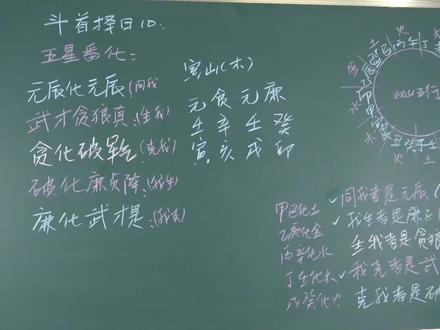 斗首择日10:
五星番化:
元辰化元辰(同我
武才贪狼真(生我)
贪化破军
破化廉贞降(我生)
廉化武才是
寅山(木)
元食元廉
壬辛壬癸
寅亥戌卯
双山五行
甲己化土
乙庚化金
丙辛化水
丁壬化木
戊癸化火
同我者是元辰
我生者是廉
生我者是贪狼
我克者是武
克我者是破